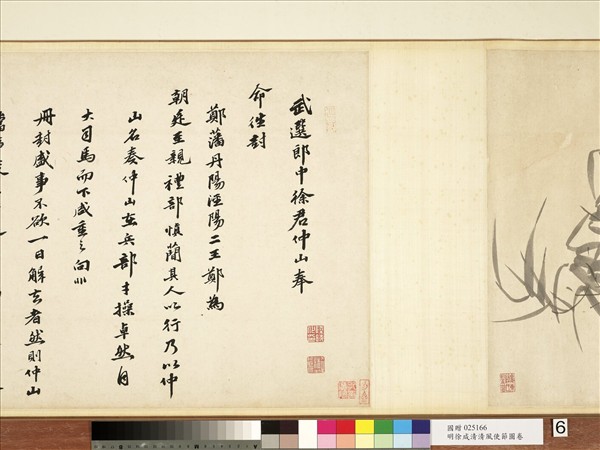 武選郎中徐君仲山奉
命往封
鄭藩丹陽涇陽二王鄭為
朝廷至親禮部慎簡其人以行乃以仲
山名奏仲山在兵部才操卓然自
大司馬而下咸重之向非
冊封盛事不欲一日解去者然則仲山
國贈 025166
明徐威清清風使節圖卷
6